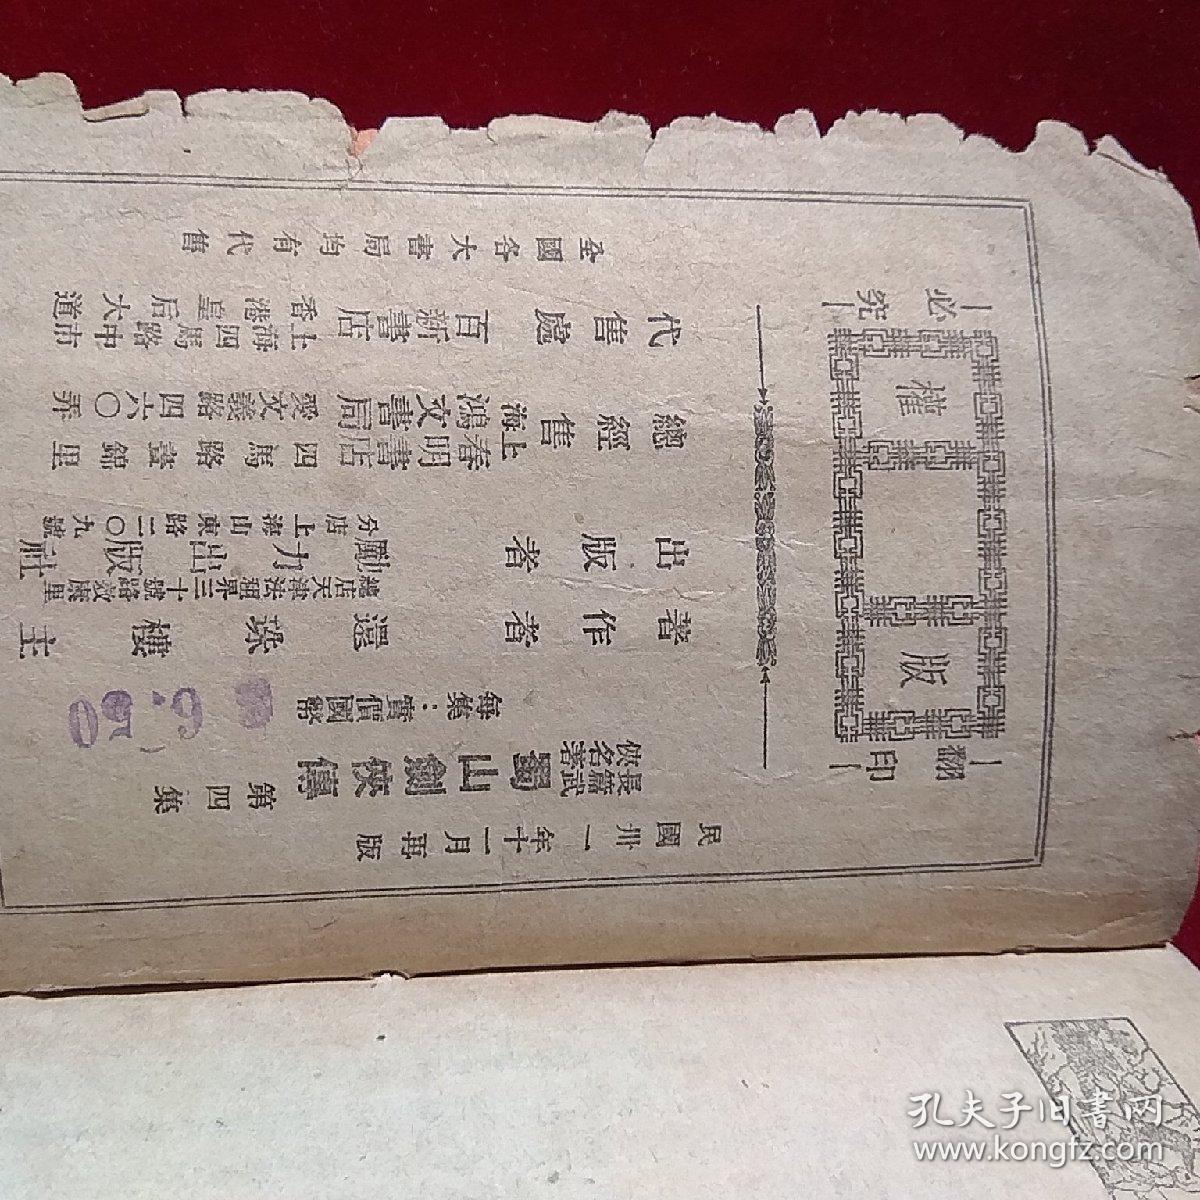 版權
翻印
必究
民國卅一年十一月再版
長篇武俠名著
蜀山劍俠傳
第四集
每集：實價國幣
6.50
著作者
還珠樓主
出版者
勵力出版社
總店天津法租界三十號路敦康里
分店上海山東路二〇九號
總經售
上海
春明書店
四馬路晝錦里
鴻文書局
愛文義路四六〇弄
代售處
百新書店
上海四馬路中市
香港皇后大道
全國各大書局均有代售
孔夫子旧书网
www.kongfz.com